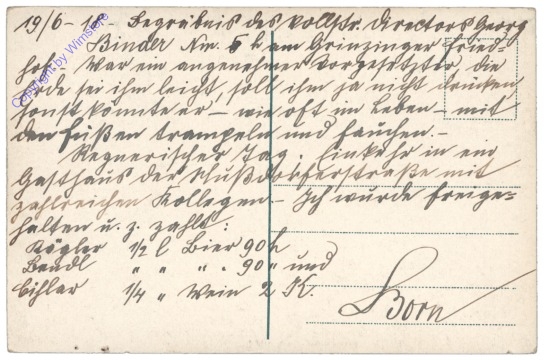 19/6-18- Begräbnis des vollstr. Directors Georg
Binder Nm. 5 h am Grinzinger Fried-
hof. War ein angenehmer Vorgesetzter die
Erde sei ihm leicht, soll ihn ja nicht drücken
sonst könnte er – wie oft im Leben – mit
den Füßen trampeln und fauchen.-
Regnerischer Tag. Einkehr in ein
Gasthaus der Nußdorferstraße mit
zahlreichen Kollegen.- Ich wurde freige-
halten u. z. zahlt:
Kögler 1/2 l Bier 90 h
Bendl " " " 90 " und
Cihlar 1/4 " Wein 2 K.
Born
Copyright by Wimstore